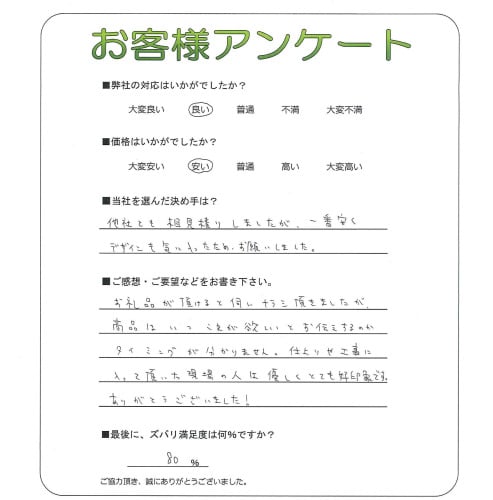 お客様アンケート
■弊社の対応はいかがでしたか？
大変良い 良い 普通 不満 大変不満
■価格はいかがでしたか？
大変安い 安い 普通 高い 大変高い
■当社を選んだ決め手は？
他社でも相見積りしましたが、一番安く
デザインも気に入ったため、お願いしました。
■ご感想・ご要望などをお書き下さい。
お礼品が頂けると伺いチラシ頂きましたが、
商品はいつ これが欲しいとお伝えするのか
タイミングが分かりません。仕上りや工事に
入って頂いた現場の人は優しくとても好印象です。
ありがとうございました！
■最後に、ズバリ満足度は何％ですか？
80 ％
ご協力頂き、誠にありがとうございました。